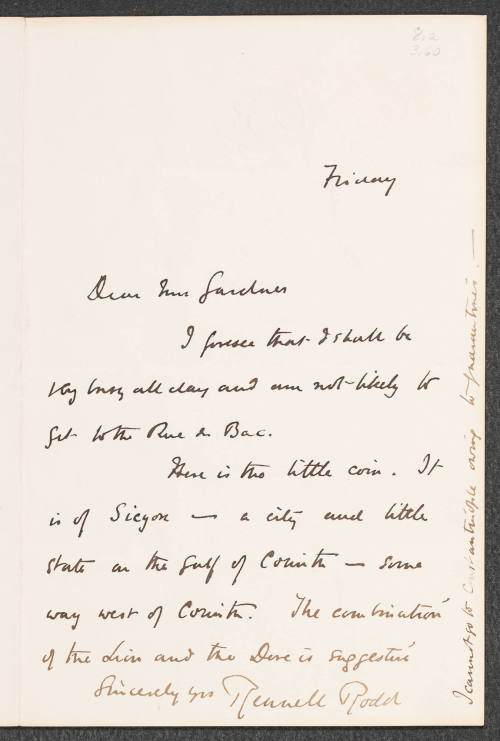 8.2
3.60
Friday
Dear Mrs Gardner
I foresee that I shall be
very busy all day and am not likely to
get to the Rue du Bac.
Here is the little coin. It
is of Sicyon — a city and little
state on the Gulf of Corinth — some
way west of Corinth. The combination
of the Lion and the Dove is suggestive
Sincerely yrs Rennell Rodd
I cannot go to Constantinople owing to quarantines. —